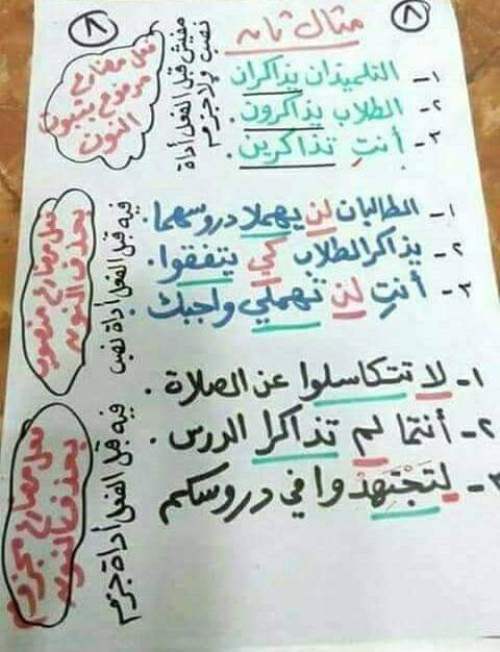 ٨
مثال ثان
٨
١- التلميذان يذاكران
٢- الطلاب يذاكرون.
٣- أنتِ تذاكرين.
مفيش قبل الفعل أداة
نصب ولا جزم
فعل مضارع
مرفوع بثبوت
النون
١- الطالبان لن يهملا دروسهما.
٢- يذاكر الطلاب كي يتفقوا.
٣- أنتِ لن تهملي واجبك
فيه قبل الفعل أداة نصب
فعل مضارع منصوب
بحذف النون
١- لا تتكاسلوا عن الصلاة.
٢- أنتما لم تذاكرا الدرس.
٣- لتجتهدوا في دروسكم
فيه قبل الفعل أداة جزم
فعل مضارع مجزوم
بحذف النون